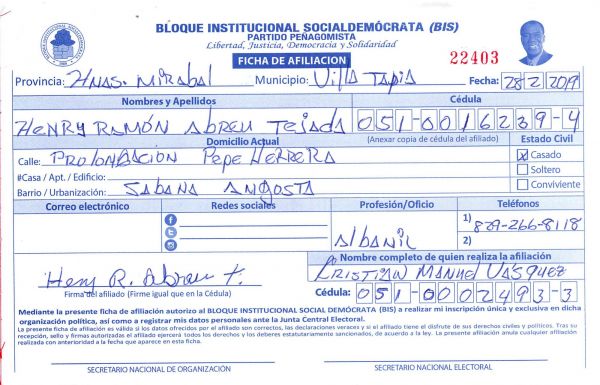 BLOQUE INSTITUCIONAL SOCIALDEMÓCRATA (BIS)
PARTIDO PEÑAGOMISTA
Libertad, Justicia, Democracia y Solidaridad
FICHA DE AFILIACION
22403
Provincia: Hnas. Mirabal Municipio: Villa Tapia Fecha: 28/2/2019
Nombres y Apellidos Cédula
HENRY RAMÓN Abreu Tejada 051-0016239-4
Domicilio Actual (Anexar copia de cédula del afiliado) Estado Civil
Calle: PROLONGACION Pepe HERRERA X Casado
#Casa / Apt. / Edificio: Soltero
Barrio / Urbanización: SABANA ANGOSTA Conviviente
Correo electrónico Redes sociales Profesión/Oficio Teléfonos
Albañil 1) 829-266-8118
2)
Nombre completo de quien realiza la afiliación
Heny R. Abreu T. CRISTIAN MANUEL VASQUEZ
Firma del afiliado (Firme igual que en la Cédula) Cédula: 051-0002493-3
Mediante la presente ficha de afiliación autorizo al BLOQUE INSTITUCIONAL SOCIAL DEMÓCRATA (BIS) a realizar mi inscripción única y exclusiva en dicha
organización política, así como a registrar mis datos personales ante la Junta Central Electoral.
La presente ficha de afiliación es válida si los datos ofrecidos por el afiliado son correctos, las declaraciones veraces y si el afiliado tiene el disfrute de sus derechos civiles y políticos. Tras su
recepción, sello y firmas autorizadas el afiliado ejercerá todos los derechos y los deberes estatutariamente sancionados, de acuerdo a la ley. La presente afiliación anula cualquier afiliación
realizada con anterioridad a la fecha que aparece en esta ficha.
SECRETARIO NACIONAL DE ORGANIZACIÓN SECRETARIO NACIONAL ELECTORAL